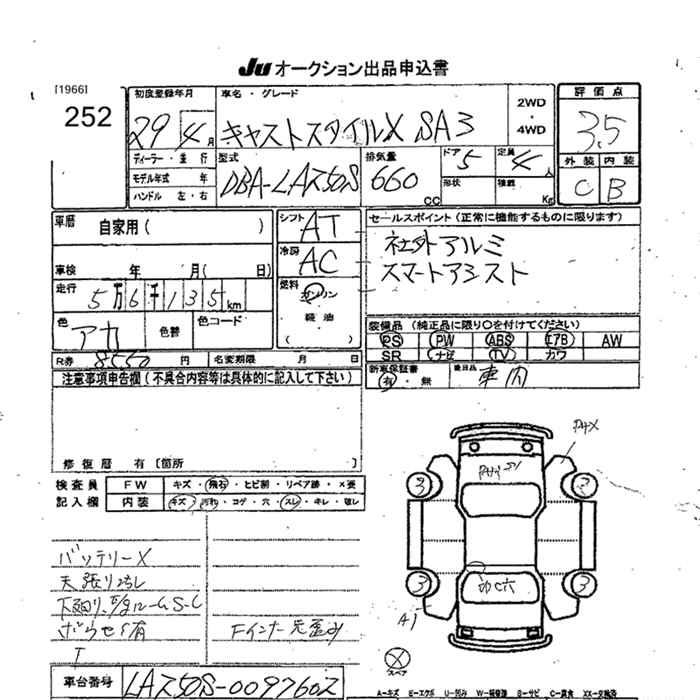 JU オークション出品申込書
[1966]
252
初度登録年月
29 4 月
ディーラー・並行
モデル年式 年
ハンドル 左・右
車名・グレード
キャストスタイルX SA3
2WD
・
4WD
型式
DBA-LA250S
排気量
660
CC
ドア
5
定員
4
人
形状
積載
Kg
評価点
3.5
外装 内装
C B
車歴
自家用( )
車検 年 月( 日)
走行
5万6千135km
色
アカ
色替
色コード
シフト
AT
冷房
AC
燃料
ガソリン
軽油
( )
セールスポイント (正常に機能するものに限ります)
社外アルミ
スマートアシスト
装備品 (純正品に限り○を付けてください)
PS PW ABS エアB AW
SR ナビ TV カワ
新車保証書
有・無
後日品
車内
R券 8550 円
名変期限 月 日
注意事項申告欄(不具合内容等は具体的に記入して下さい)
修復歴 有 [箇所 ]
検査員
記入欄
FW
キズ・飛石・ヒビ割・リペア跡・X要
内装
キズ・汚れ・コゲ・穴・スレ・キレ・破レ
バッテリーX
天張り汚レ
Fインナー
車台番号
LA250S-0097602
3 2
3 3
A1
スペア
A-キズ E-エクボ U-凹み W-補修跡 S-サビ C-腐食 XX-交換済